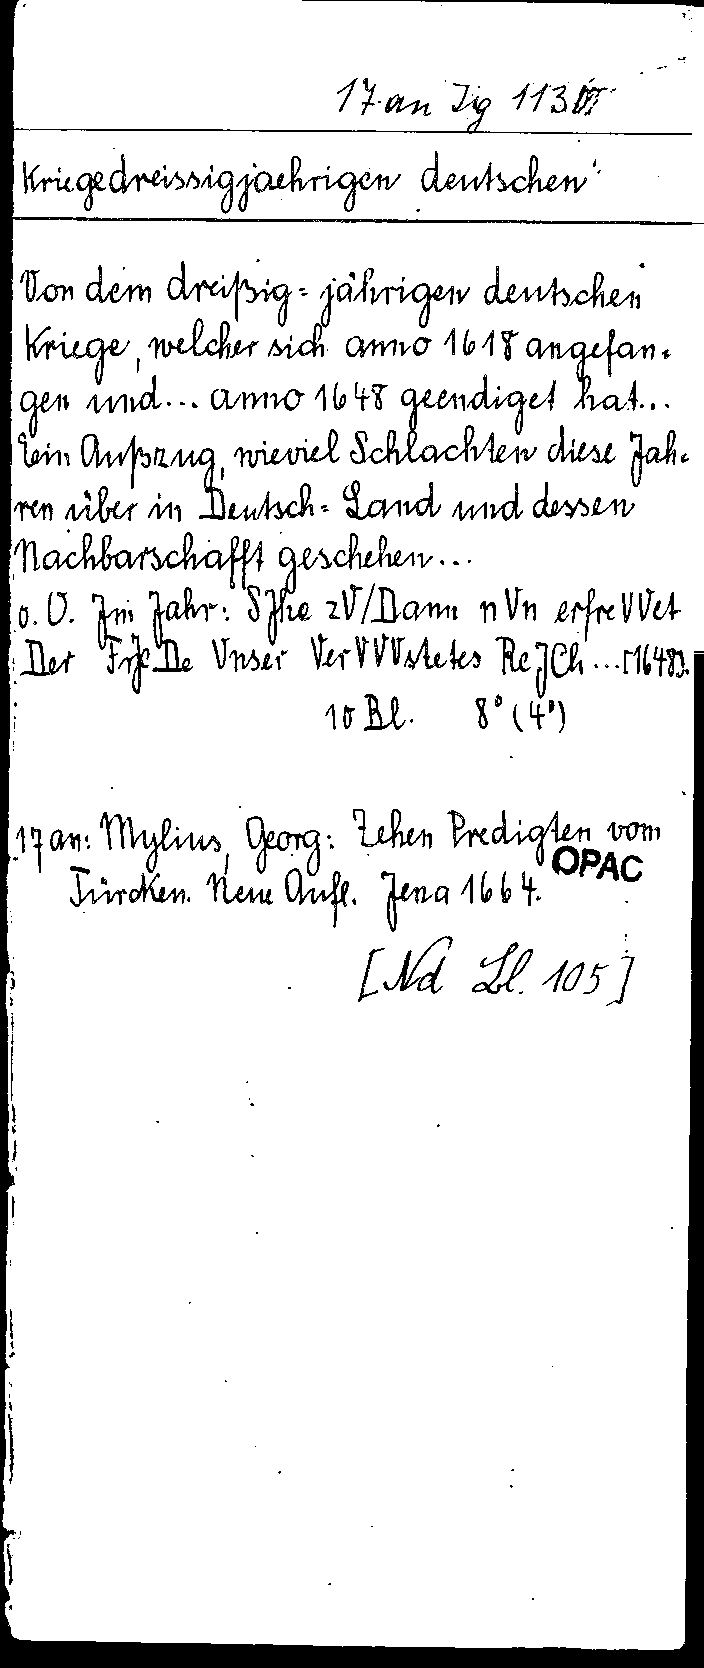 17 an Jg 113
Kriegedreissigjaehrigen deutschen
Von dem dreißig= jährigen deutschen
Kriege, welcher sich anno 1618 angefan=
gen und... anno 1648 geendiget hat...
Ein Außzug, wieviel Schlachten diese Jah=
ren über in Deutsch= Land und dessen
Nachbarschafft geschehen...
o. O. Im Jahr: SJhe zV/Dann nVn erfreVVet
Der FrJeDe Vnser VerVVVstetes ReJCh...[1648].
10 Bl. 8° (4°)
17 an: Mylius, Georg: Zehen Predigten vom
OPAC
Türcken. Neue Aufl. Jena 1664.
[Nd Bl. 105]